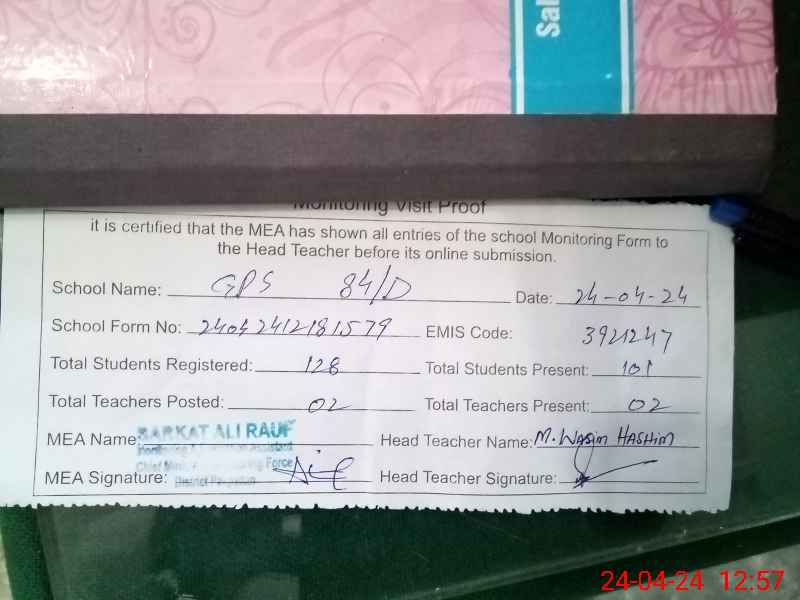 Sal
Monitoring Visit Proof
it is certified that the MEA has shown all entries of the school Monitoring Form to
the Head Teacher before its online submission.
School Name: GPS 84/D Date: 24-04-24
School Form No: 24042412181579 EMIS Code: 3921247
Total Students Registered: 128 Total Students Present: 101
Total Teachers Posted: 02 Total Teachers Present: 02
MEA Name: BARKAT ALI RAUF Head Teacher Name: M. WASIM HASHIM
Monitoring & Evaluation Assistant
Chief Monitoring Force
MEA Signature: District Head Teacher Signature:
24-04-24 12:57